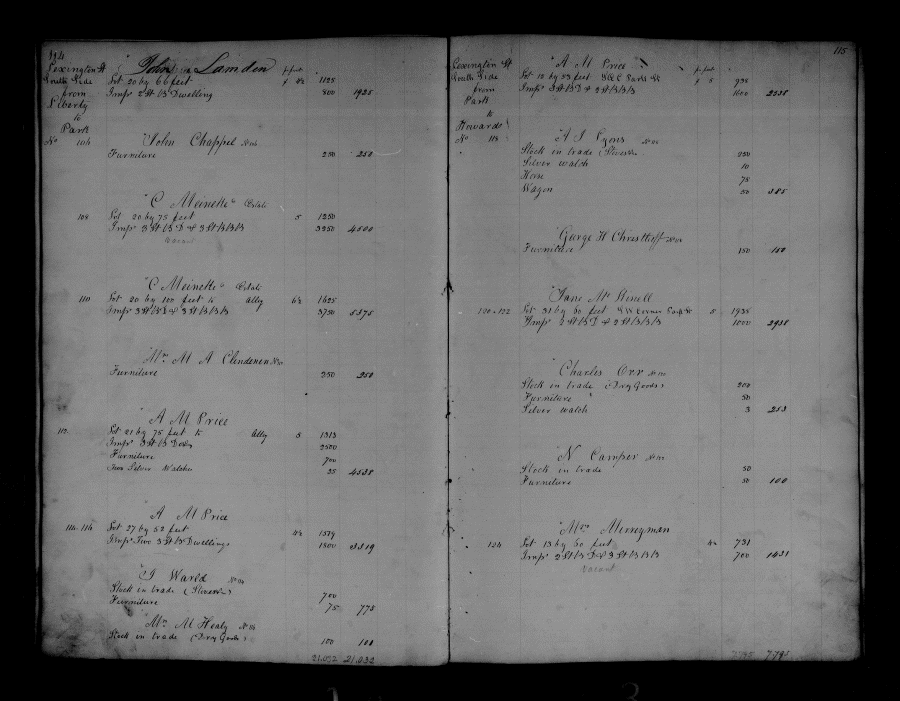 114
Lexington St John Lamden
South Side Lot 20 by 66 feet 1125
from Imps 2 St B Dwelling 800 1925
Liberty
to
Park
No 104 John Chappel
Furniture 250 250
C Meineke Estate
108 Lot 20 by 75 feet 5 1250
Imps 3 St B D & 3 St B B B 3250 4500
vacant
C Meineke Estate
110 Lot 20 by 100 feet to Alley 1625
Imps 3 St B D & 3 St B B B 3750 5375
Mrs M A Clendenen
Furniture 250 250
A M Price
112 Lot 21 by 75 feet to Alley 5 1313
Imps 3 St B Dwg 2500
Furniture 700
Two Silver Watches 25 4538
A M Price
114-116 Lot 27 by 52 feet 1519
Imps Two 3 St B Dwellings 1800 3319
Stock in trade 700
Furniture 75 775
Mrs M Healy
Stock in trade (Dry Goods) 100 100
21,032 21,032
115
Lexington St A M Price
South Side Lot 18 by 53 feet Park St 5 938
from Imps 1600 2538
Park
to
Howard
No 118 A J Lyons
Stock in trade 250
Silver watch 10
Horse 75
Wagon 50 385
George H Christhoff
Furniture 150 150
Jane Mc Stinell
120-122 Lot 31 by 60 feet Corner Park St 5 1938
Imps 2 St B D & 2 St B B B 1000 2938
Charles Orr
Stock in trade (Dry Goods) 200
Furniture 50
Silver watch 3 253
N Camper
Stock in trade 50
Furniture 50 100
Mrs Merryman
124 Lot 13 by 60 feet 731
Imps 2 St B D & 3 St B B B 700 1431
vacant
7795 7795